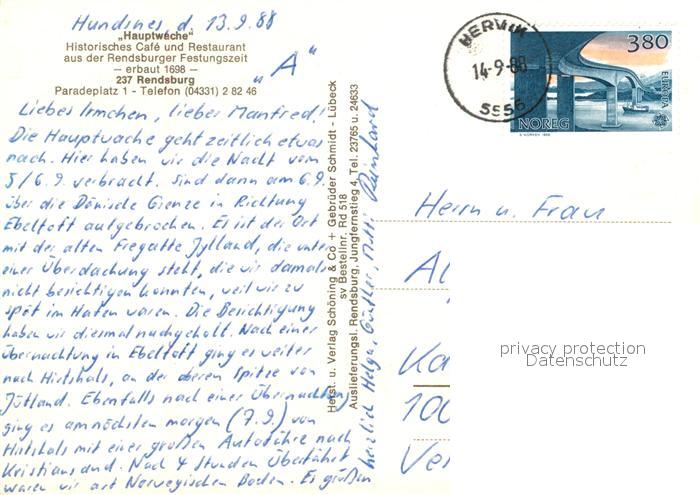 Hundsnes d. 13.9.88
„Hauptwache"
Historisches Café und Restaurant
aus der Rendsburger Festungszeit
— erbaut 1698 —
237 Rendsburg
Paradeplatz 1 - Telefon (04331) 2 82 46
„A"
Liebes Irmchen, lieber Manfred!
Die Hauptwache geht zeitlich etwas
nach. Hier haben wir die Nacht vom
5/6.9. verbracht. Sind dann am 6.9.
über die Dänische Grenze in Richtung
Ebeltoft aufgebrochen. Es ist der Ort
mit der alten Fregatte Jylland, die unter
einer Überdachung steht, die wir damals
nicht besichtigen konnten, weil wir zu
spät im Hafen waren. Die Besichtigung
haben wir diesmal nachgeholt. Nach einer
Übernachtung in Ebeltoft ging es weiter
nach Hirtshals, an der oberen Spitze von
Jütland. Ebenfalls nach einer Übernachtung
ging es am nächsten morgen (7.9.) von
Hirtshals mit einer großen Autofähre nach
Kristiansand. Nach 4 Stunden Überfahrt
waren wir auf Norwegischen Boden. Es grüßen
herzlich Helga, Günther, Mutti Reinhard
Herst. u. Verlag Schöning & Co + Gebrüder Schmidt - Lübeck
sv Bestellnr. Rd 518
Auslieferungsl. Rendsburg, Jungfernstieg 4, Tel. 23765 u. 24633
HERVIK
14-9-88
5556
380
EUROPA
NOREG
Herrn u. Frau
Al
Ka
100
Ve
privacy protection
Datenschutz